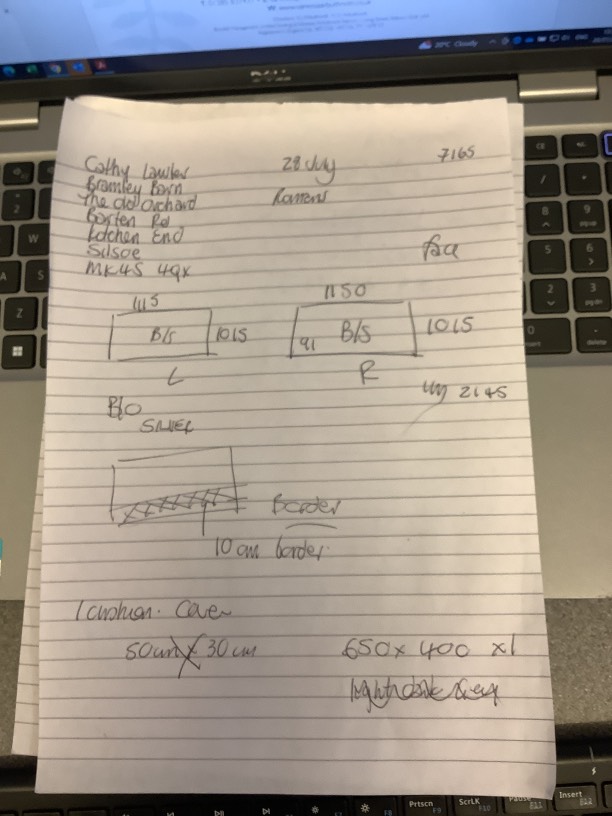 Cathy Lawler 28 July 7165
Bramley Barn
The old Orchard Romans
Barten Rd
Kitchen End
Silsoe
MK45 4QX
1115 1150
B/S 1015 91 B/S 1015
L R
B/O 2145
SILVER
Border
10 cm border.
1 cushion. Cover
50cm X 30 cm 650 x 400 x1
20°C Cloudy
DELL
Prtscn
F9
ScrLK
F10
Pause
F11
Insert
F12